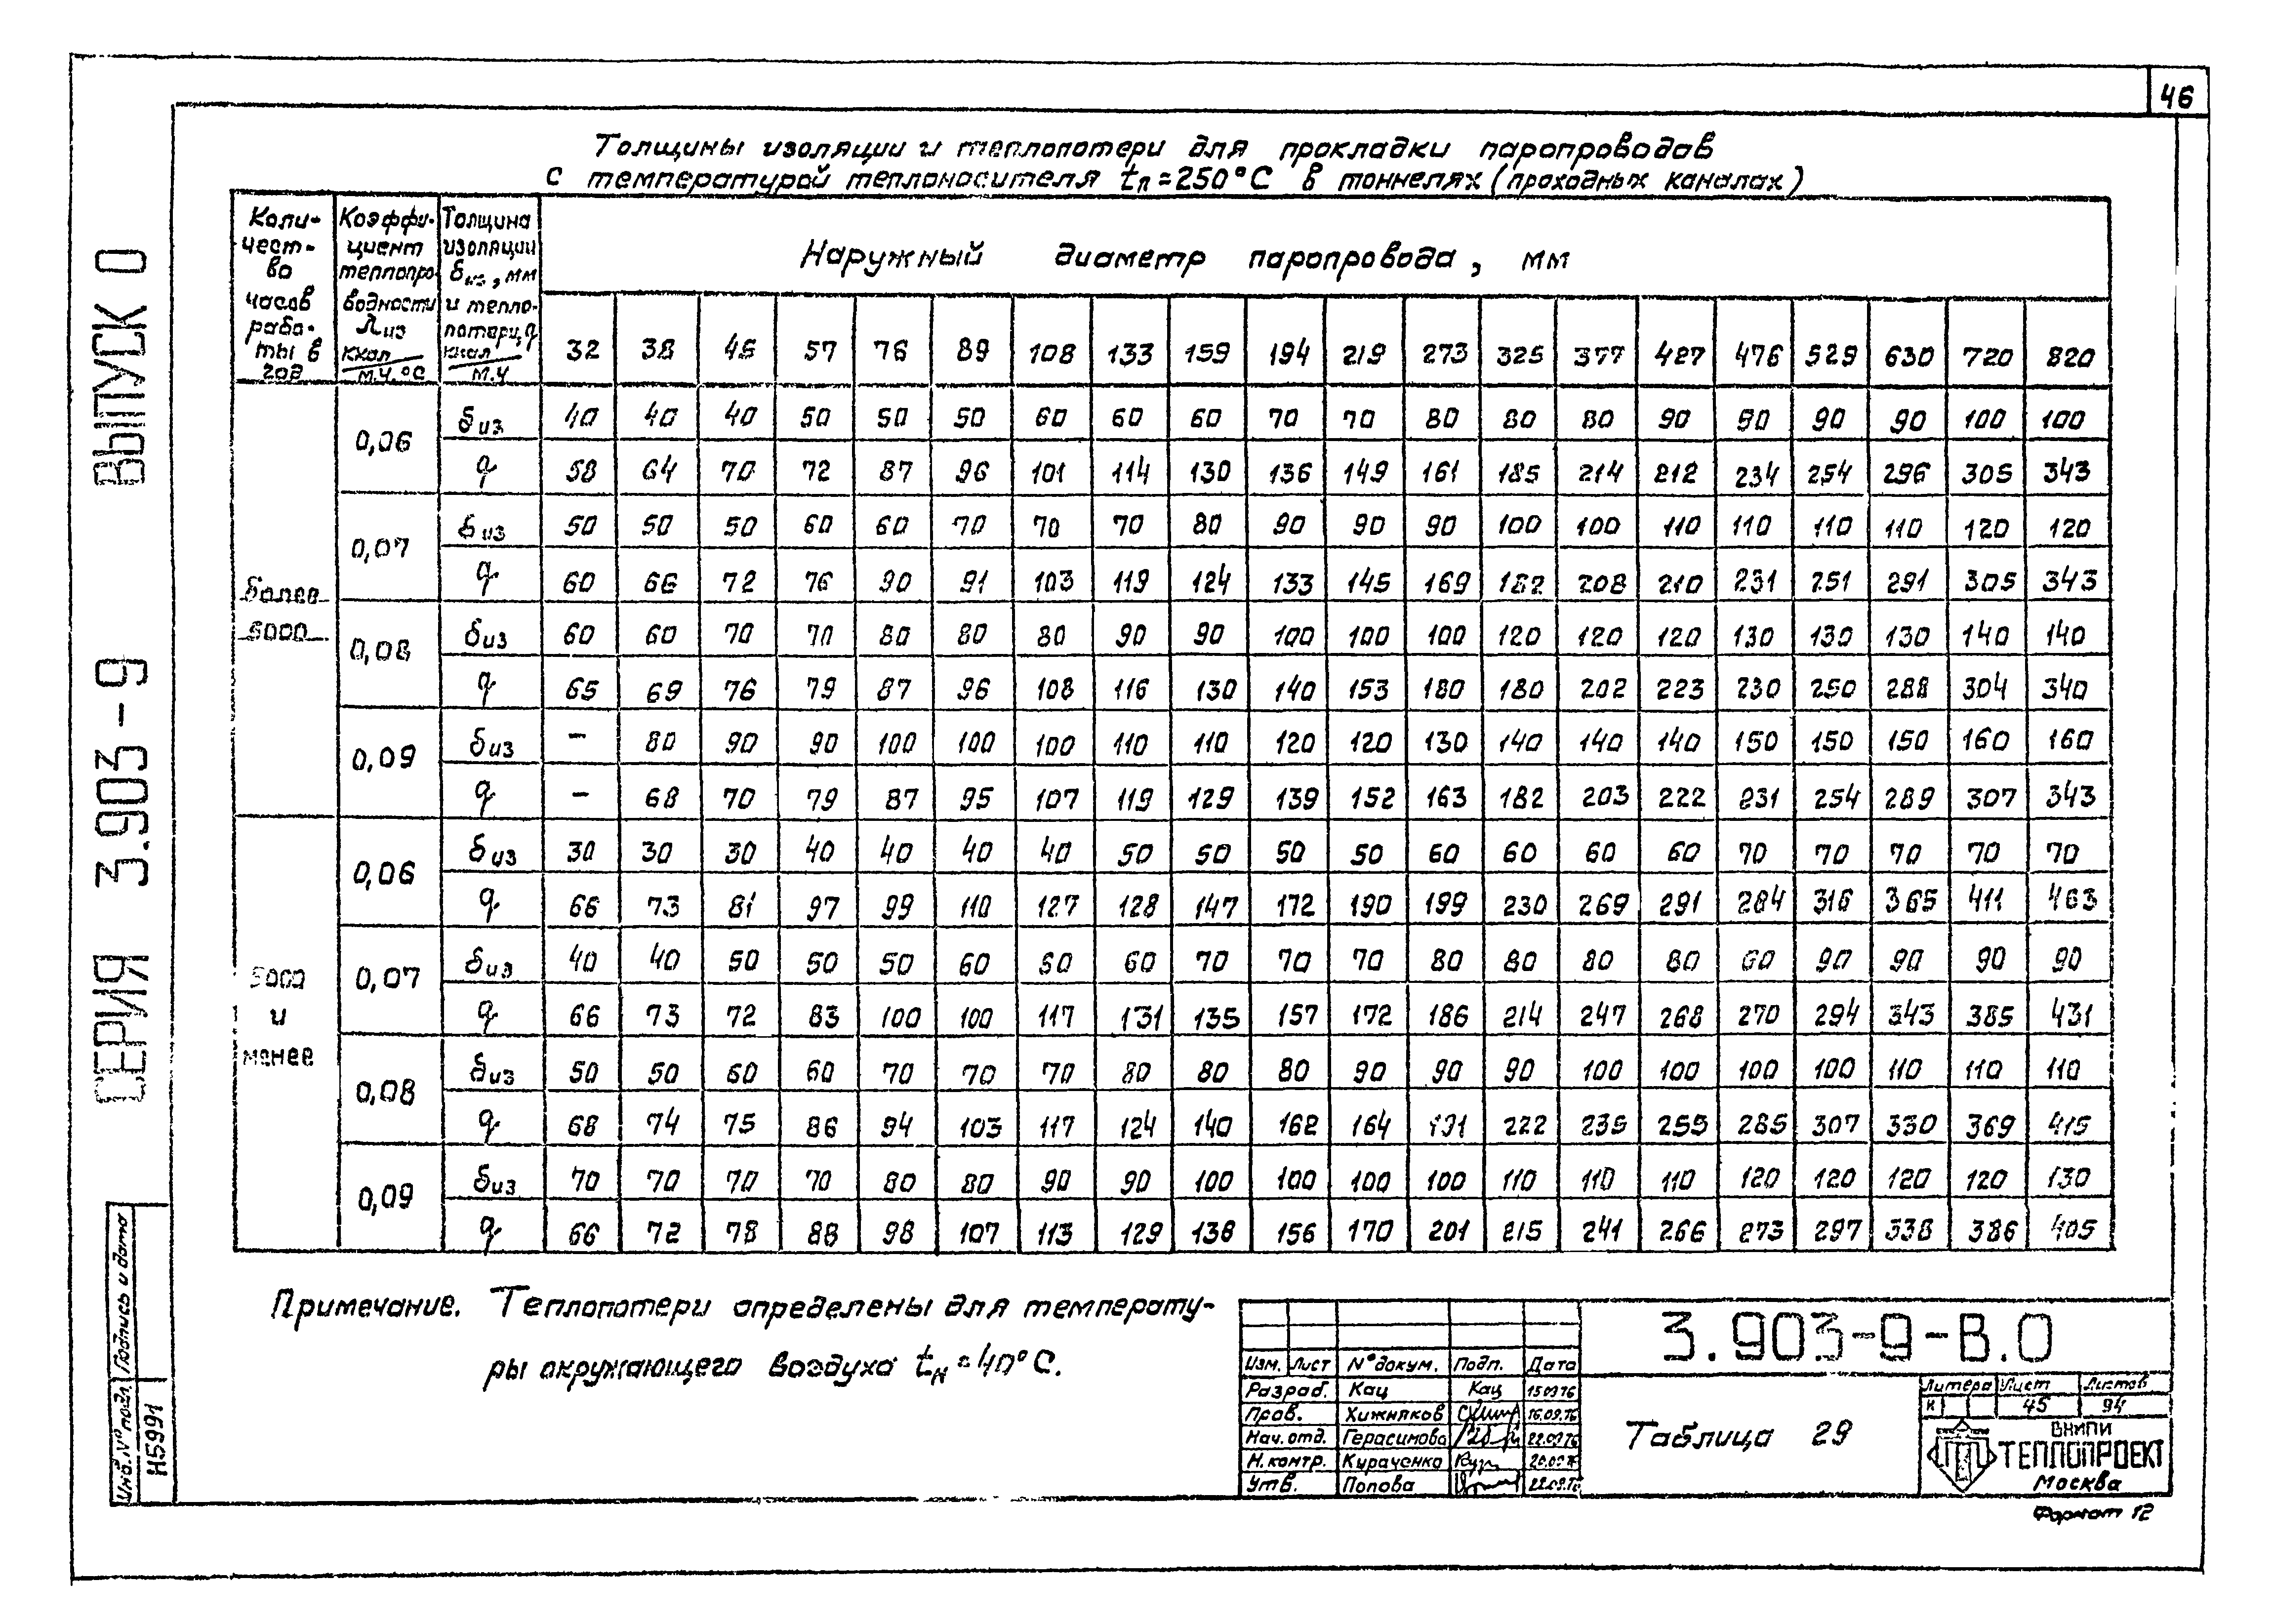 46
Толщины изоляции и теплопотери для прокладки паропроводов
с температурой теплоносителя tп=250°С в тоннелях (проходных каналах)
Коли-чест-во часов рабо-ты в год
Коэффи-циент теплопро-водности λиз ккал/м.ч.°С
Толщина изоляции δиз, мм и тепло-потери, q ккал/м.ч
Наружный диаметр паропровода, мм
32 38 45 57 76 89 108 133 159 194 219 273 325 377 427 476 529 630 720 820
более 5000
0,06 δиз 40 40 40 50 50 50 60 60 60 70 70 80 80 80 90 90 90 90 100 100
q 58 64 70 72 87 96 101 114 130 136 149 161 185 214 212 234 254 296 305 343
0,07 δиз 50 50 50 60 60 70 70 70 80 90 90 90 100 100 110 110 110 110 120 120
q 60 66 72 76 90 91 103 119 124 133 145 169 182 208 210 231 251 291 305 343
0,08 δиз 60 60 70 70 80 80 80 90 90 100 100 100 120 120 120 130 130 130 140 140
q 65 69 76 79 87 96 108 116 130 140 153 180 180 202 223 230 250 288 304 340
0,09 δиз - 80 90 90 100 100 100 110 110 120 120 130 140 140 140 150 150 150 160 160
q - 68 70 79 87 95 107 119 129 139 152 163 182 203 222 231 254 289 307 343
5000 и менее
0,06 δиз 30 30 30 40 40 40 40 50 50 50 50 60 60 60 60 70 70 70 70 70
q 66 73 81 97 99 110 127 128 147 172 190 199 230 269 291 284 316 365 411 463
0,07 δиз 40 40 50 50 50 60 60 60 70 70 70 80 80 80 80 90 90 90 90
q 66 73 72 83 100 100 117 131 135 157 172 186 214 247 268 270 294 343 385 431
0,08 δиз 50 50 60 60 70 70 70 80 80 80 90 90 90 100 100 100 100 110 110 110
q 68 74 75 86 94 103 117 124 140 162 164 191 222 235 255 285 307 330 369 415
0,09 δиз 70 70 70 70 80 80 90 90 100 100 100 100 110 110 110 120 120 120 120 130
q 66 72 78 88 98 107 113 129 138 156 170 201 215 241 266 273 297 338 386 405
Примечание. Теплопотери определены для температу-
ры окружающего воздуха tн=40°С.
СЕРИЯ 3.903-9 ВЫПУСК 0
Инв.№подл. Подпись и дата
Н5991
3.903-9-В.0
Изм. Лист №докум. Подп. Дата
Разраб. Кац Кац 15.09.76
Пров. Хижняков 16.09.76
Нач.отд. Герасимова 22.09.76
Н.контр. Кураченко
Утв. Попова 22.09.76
Таблица 29
Литера Лист Листов
К 45 94
ВНИПИ
ТЕПЛОПРОЕКТ
Москва
Формат 12